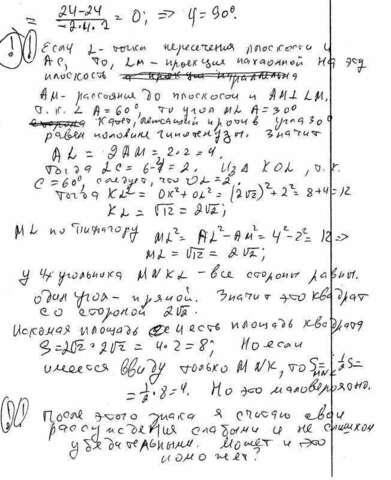 24-24
= ——— = 0; => φ = 90°.
-2·4·2
Если L - точка пересечения плоскости и
AC, то, LM - проекция наклонной на эту
плоскость
AM - рассояние до плоскости и AM⊥LM.
т.к. ∠A=60°, то угол MLA=30°
Катет, лежащий против угла 30°
равен половине гипотенузы. Значит
AL = 2AM = 2·2 = 4.
Тогда LC = 6-4 = 2. Из Δ KOL, т.к.
C=60°, следует, что OL=2;
Тогда KL² = OK²+OL² = (2√2)²+2² = 8+4 = 12
KL = √12 = 2√2;
ML по Пифагору ML² = AL²-AM² = 4²-2² = 12 =>
ML = √12 = 2√2;
у 4х угольника MNKL - все стороны равны.
один угол - прямой. Значит это квадрат
со стороной 2√2.
Искомая площадь есть площадь квадрата
S = 2√2·2√2 = 4·2 = 8; Но если
имеется ввиду только MNK, то S = ½S =
= ½·8 = 4. Но это маловероятно.
После этого знака я считаю свои
рассуждения слабыми и не слишком
убедательными. Может и это
поможет?